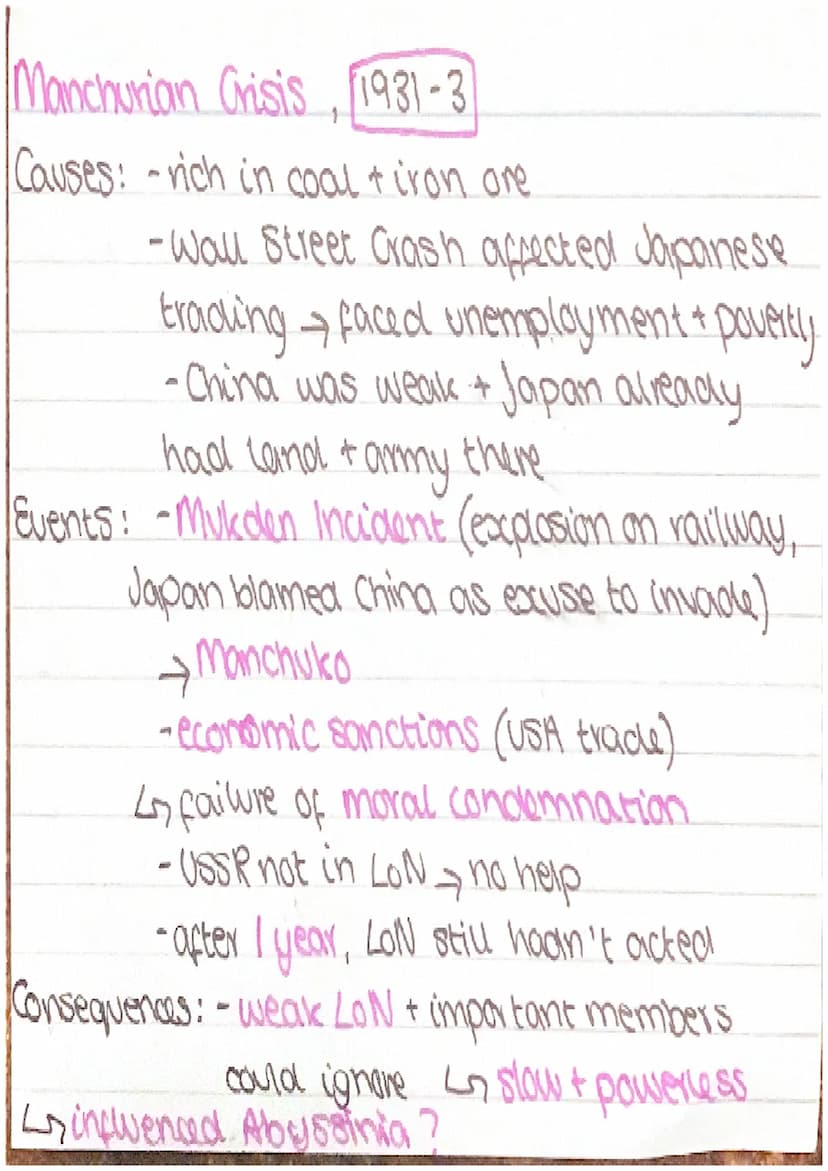 Manchurian Crisis, 1931-3
Causes: - rich in coal + iron ore
- Wall Street Crash affected Japanese
trading → faced unemployment + poverty
- China was weak + Japan already
had land + army there
Events: - Mukden Incident (explosion on railway,
Japan blamed China as excuse to invade)
→ Manchuko
- economic sanctions (USA trade)
↳ failure of moral condemnation
- USSR not in LoN → no help
- after 1 year, LoN still hadn't acted
Consequences: - weak LoN + important members
could ignore ↳ slow + powerless
↳ influenced Abyssinia?